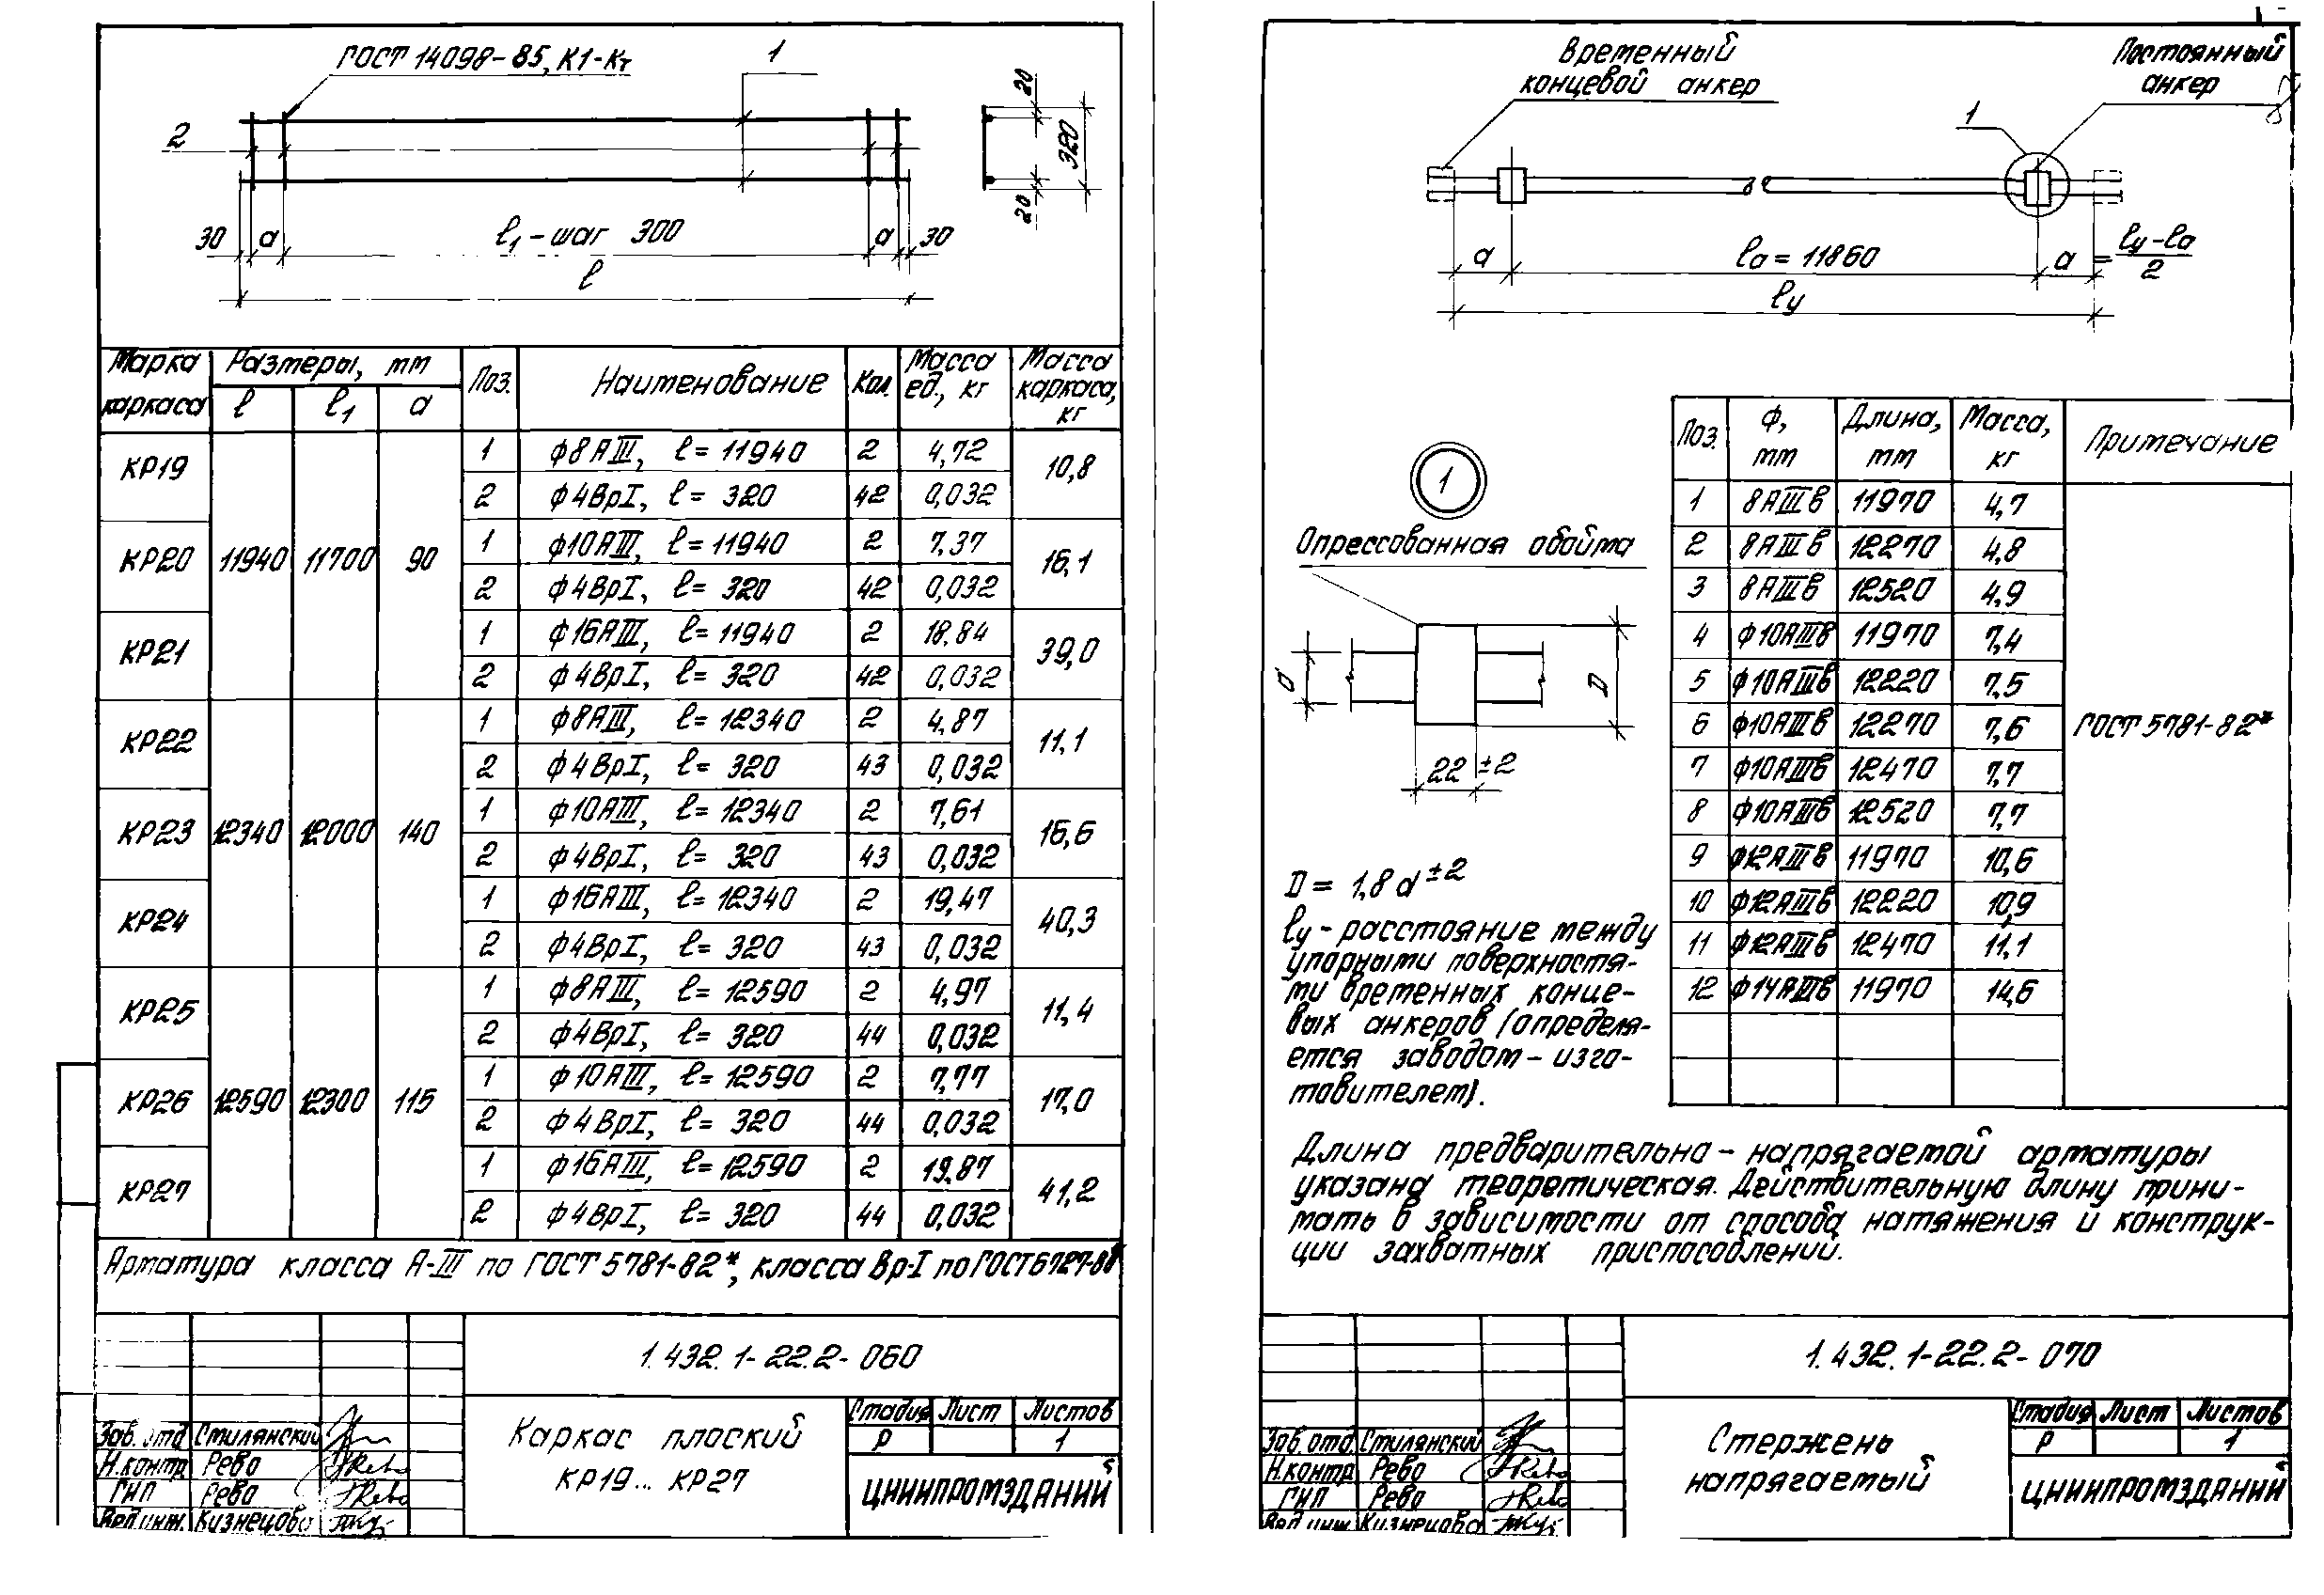 ГОСТ 14098-85, К1-Кт
1
2
20
320
20
30 a l₁ - шаг 300 a 30
l
Марка каркаса Размеры, мм Поз. Наименование Кол. Масса ед., кг Масса каркаса, кг
l l₁ a
КР19 1 ф8АIII, l= 11940 2 4,72 10,8
2 ф4ВрI, l= 320 42 0,032
КР20 11940 11700 90 1 ф10АIII, l=11940 2 7.37 16,1
2 ф4ВрI, l= 320 42 0,032
КР21 1 ф16АIII, l=11940 2 18.84 39,0
2 ф4ВрI, l= 320 42 0,032
КР22 1 ф8АIII, l=12340 2 4,87 11,1
2 ф4ВрI, l= 320 43 0,032
КР23 12340 12000 140 1 ф10АIII, l=12340 2 7,61 16,6
2 ф4ВрI, l= 320 43 0,032
КР24 1 ф16АIII, l=12340 2 19,47 40,3
2 ф4ВрI, l= 320 43 0,032
КР25 1 ф8АIII, l=12590 2 4,97 11,4
2 ф4ВрI, l= 320 44 0,032
КР26 12590 12300 115 1 ф10АIII, l=12590 2 7,77 17,0
2 ф4ВрI, l= 320 44 0,032
КР27 1 ф16АIII, l=12590 2 19,87 41,2
2 ф4ВрI, l= 320 44 0,032
Арматура класса А-III по ГОСТ 5781-82*, класса Вр-I по ГОСТ 6727-8
1.432.1-22.2-060
Каркас плоский
КР19... КР27
Стадия Лист Листов
Р 1
ЦНИИПРОМЗДАНИЙ
Зав. отд. Стилянский
Н.контр Рево
ГИП Рево
Вед.инж. Кузнецова
Временный
концевой анкер
Постоянный
анкер
1
a lа = 11860 a = lу-lа
2
lу
1
Опрессованная обойма
d
D
22 ±2
D = 1,8 d ±2
lу - расстояние между
упорными поверхностя-
ми временных конце-
вых анкеров (определя-
ется заводом - изго-
товителем).
Поз. Ф, мм Длина, мм Масса, кг Примечание
1 8АIIIв 11970 4,7
2 8АIIIв 12270 4,8
3 8АIIIв 12520 4,9
4 ф10АIIIв 11970 7,4
5 ф10АIIIв 12220 7.5
6 ф10АIIIв 12270 7,6 ГОСТ 5781-82*
7 ф10АIIIв 12470 7,7
8 ф10АIIIв 12520 7,7
9 ф12АIIIв 11970 10,6
10 ф12АIIIв 12220 10,9
11 ф12АIIIв 12470 11,1
12 ф14АIIIв 11970 14,6
Длина предварительно - напрягаемой арматуры
указана теоретическая. Действительную длину прини-
мать в зависимости от способа натяжения и конструк-
ции захватных приспособлений.
1.432.1-22.2-070
Стержень
напрягаемый
Стадия Лист Листов
Р 1
ЦНИИПРОМЗДАНИЙ
Зав. отд. Стилянский
Н.контр Рево
ГИП Рево
Вед.инж. Кузнецова